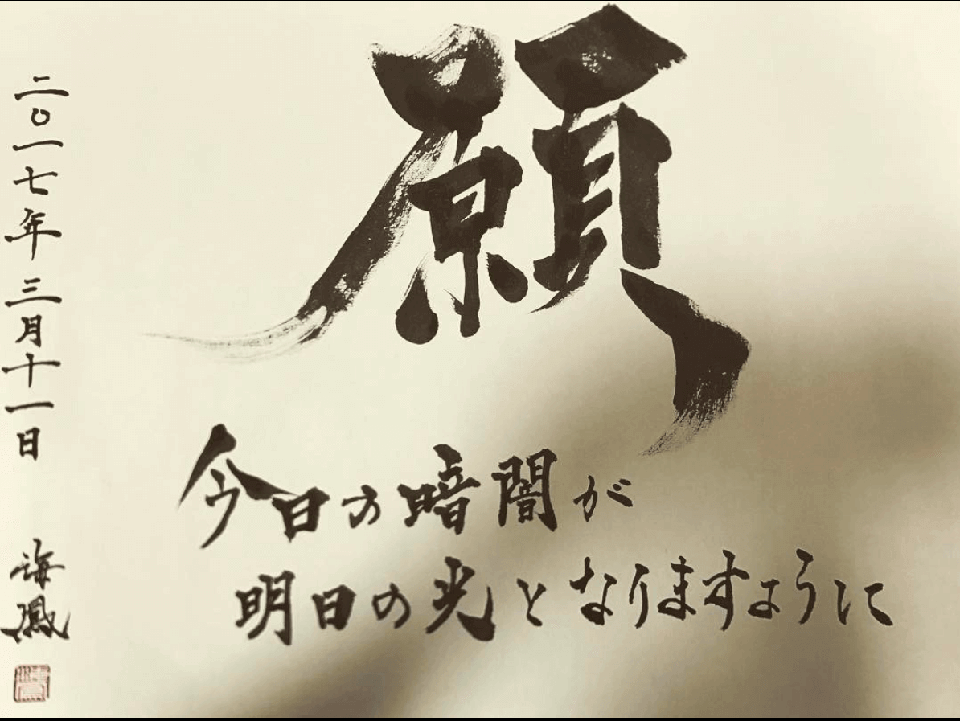 願
今日の暗闇が
明日の光となりますように
二〇一七年三月十一日
海鳳